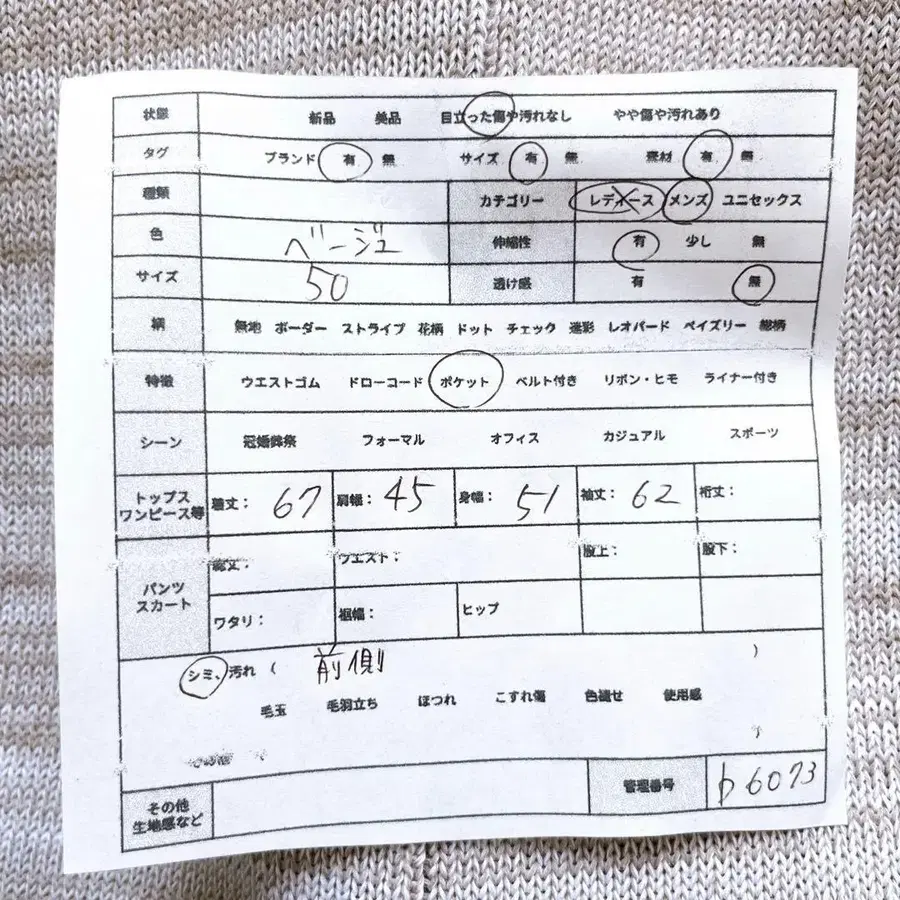 状態 新品 美品 目立った傷や汚れなし やや傷や汚れあり
タグ ブランド 有 無 サイズ 有 無 素材 有 無
種類 カテゴリー レディース メンズ ユニセックス
色 ベージュ 伸縮性 有 少し 無
サイズ 50 透け感 有 無
柄 無地 ボーダー ストライプ 花柄 ドット チェック 迷彩 レオパード ペイズリー 総柄
特徴 ウエストゴム ドローコード ポケット ベルト付き リボン・ヒモ ライナー付き
シーン 冠婚葬祭 フォーマル オフィス カジュアル スポーツ
トップス
ワンピース等 着丈: 67 肩幅: 45 身幅: 51 袖丈: 62 裄丈:
パンツ
スカート
総丈: ウエスト: 股上: 股下:
ワタリ: 裾幅: ヒップ
シミ、汚れ ( 前側 )
毛玉 毛羽立ち ほつれ こすれ傷 色褪せ 使用感
その他
生地感など 管理番号 b6073